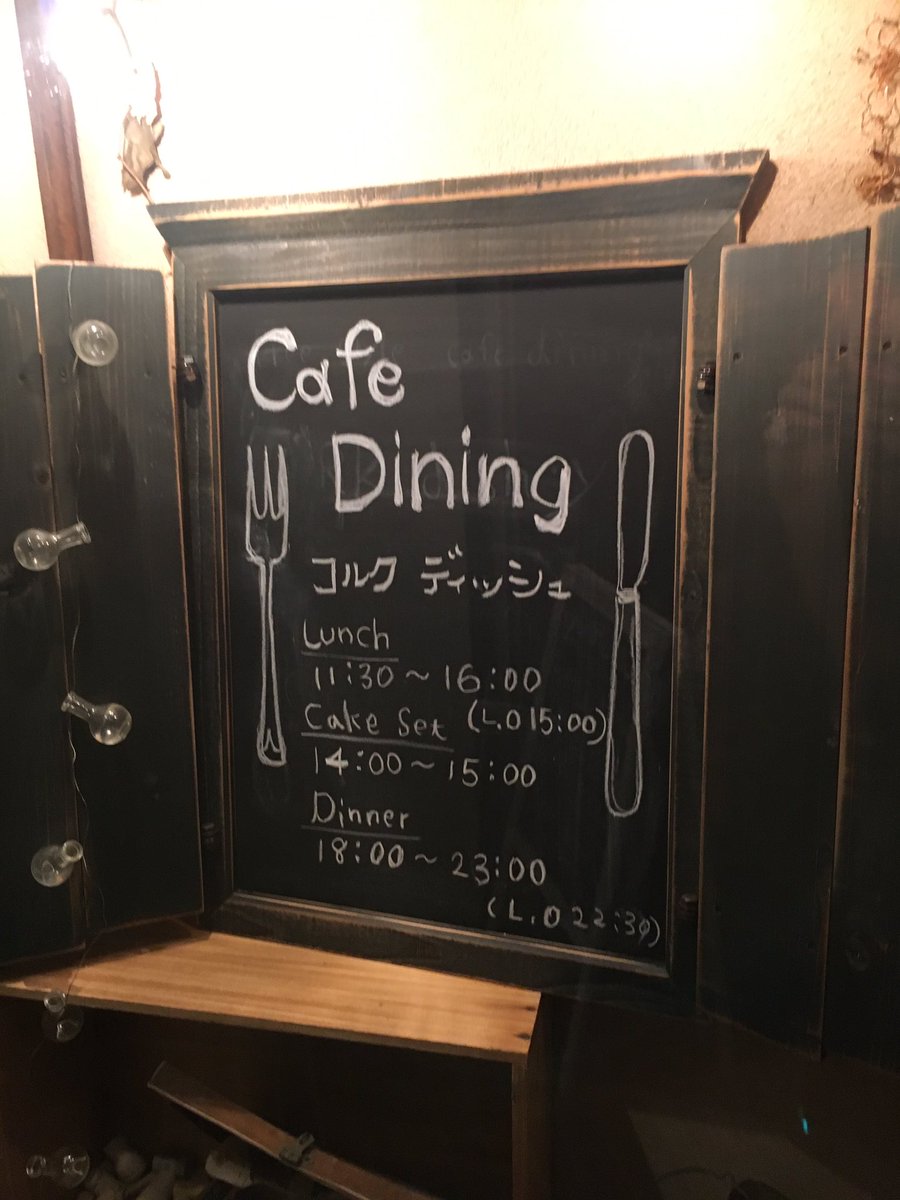 Cafe
Dining
コルク ディッシュ
Lunch
11:30~16:00
(L.O 15:00)
Cake Set
14:00~15:00
Dinner
18:00~23:00
(L.O 22:30)